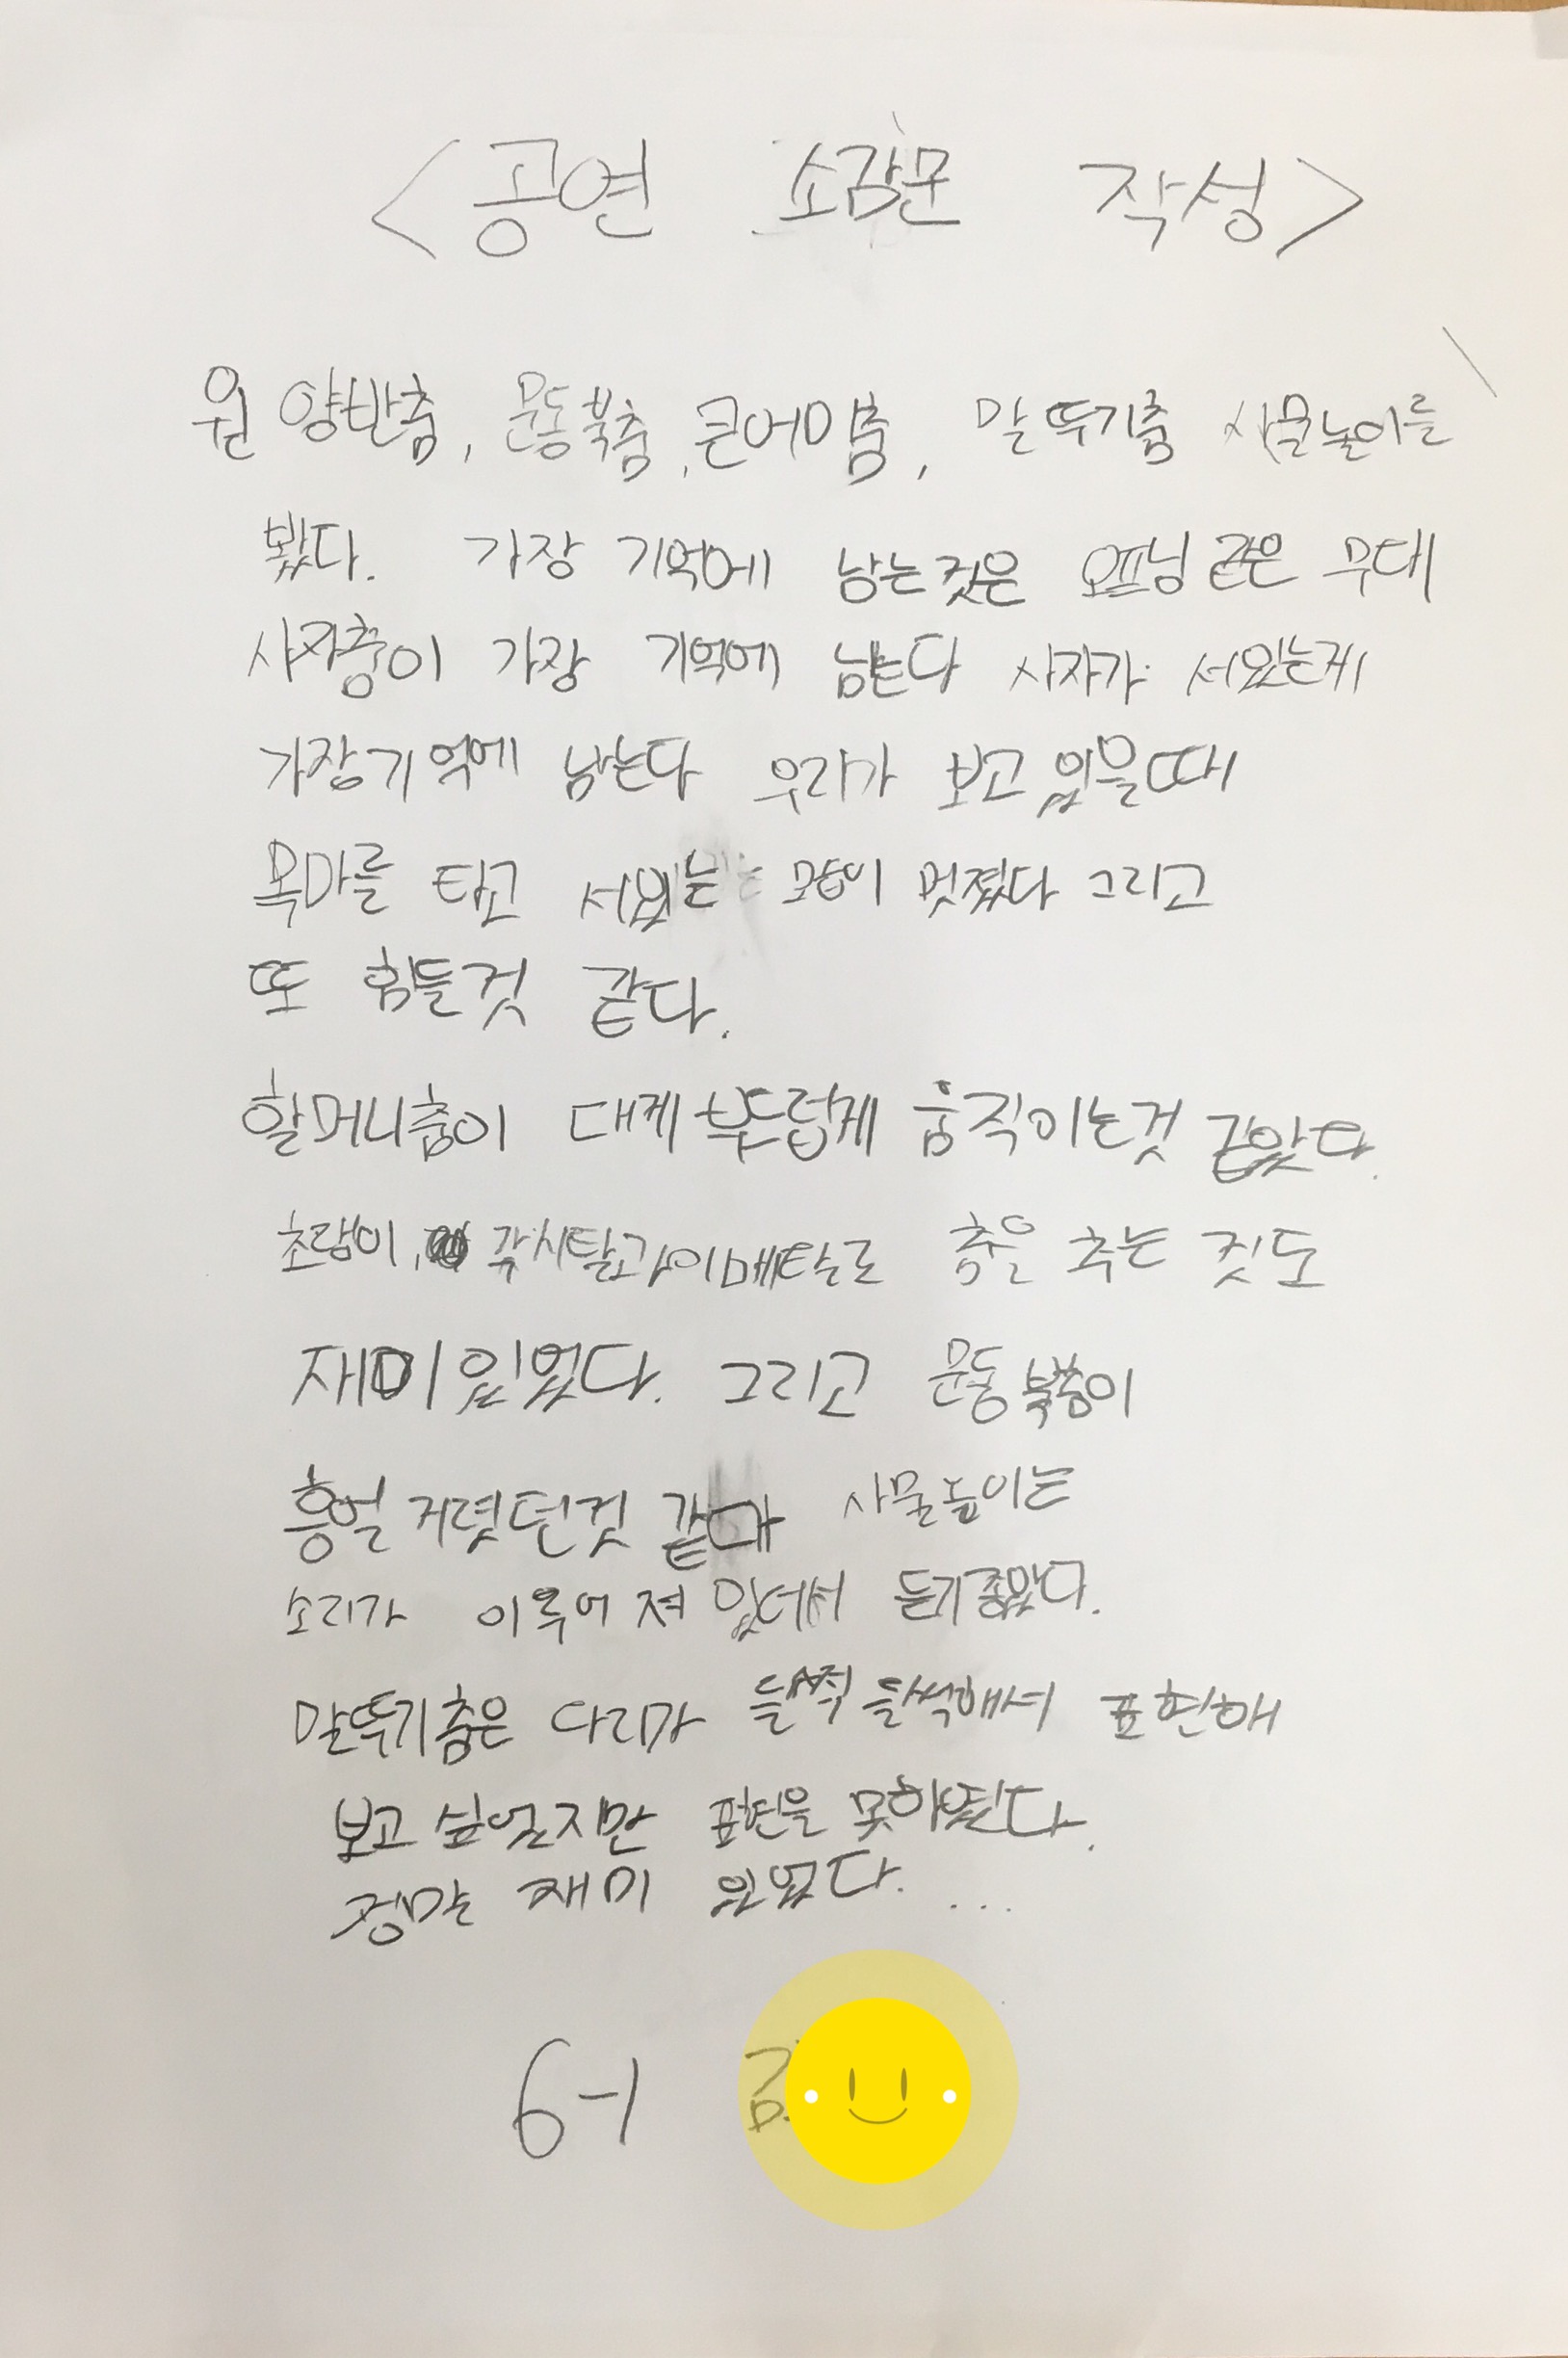 <공연 소감문 작성>
원 양반춤, 문동북춤, 큰어미춤, 말뚝기춤 사물놀이를
봤다. 가장 기억에 남는것은 오프닝 같은 무대
사자춤이 가장 기억에 남는다 사자가 서있는게
가장기억에 남는다 우리가 보고 있을때
목마를 타고 서있는 모습이 멋졌다 그리고
또 힘들것 같다.
할머니춤이 대게 부드럽게 움직이는것 같았다.
초랭이, 각시탈과 이메탈로 춤을 추는 것도
재미있었다. 그리고 문둥북춤이
흥얼거렸던것 같다 사물놀이는
소리가 이루어져 있어서 듣기좋았다.
말뚝기춤은 다리가 들썩들썩해서 표현해
보고 싶었지만 표현을 못하였다.
정말 재미 있었다. ...
6-1 김